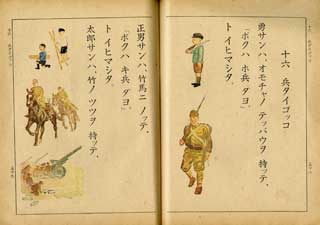 十六 兵タイゴッコ
勇サンハ、オモチャノ テッパウヲ 持ッテ、
「ボクハ ホ兵 ダヨ。」
ト イヒマシタ。
正男サンハ、竹馬ニ ノッテ、
「ボクハ キ兵 ダヨ。」
ト イヒマシタ。
太郎サンハ、竹ノ ツツヲ 持ッテ、